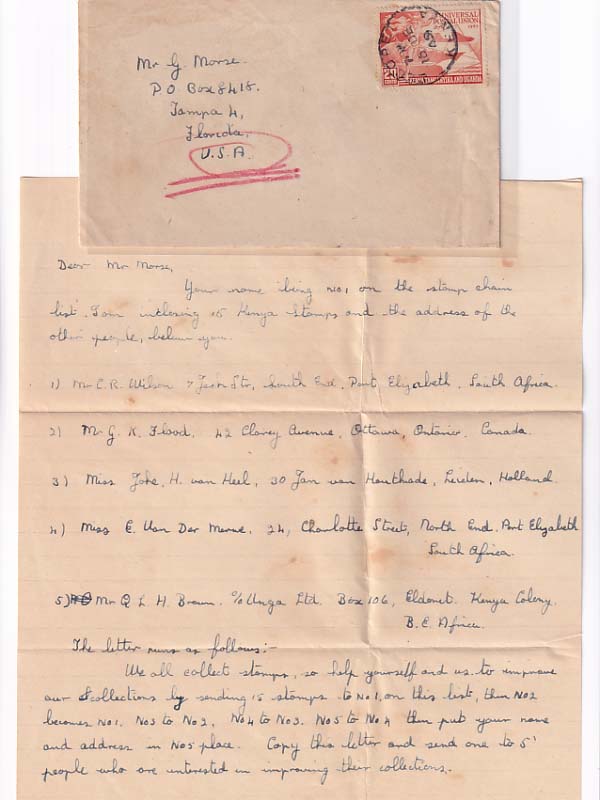 Mr G Morse.
P O Box 8418.
Tampa 4,
Florida,
U.S.A.
UNIVERSAL
POSTAL UNION
20
KENYA
Dear Mr Morse,
Your name being No, 1 on the stamp chain
list. I am inclosing 15 Kenya stamps and the address of the
other people, below you.
1) Mr C. R. Wilson 7 Str, South End, Port Elizabeth, South Africa.
2) Mr G. K. Flood. 42 Clarey Avenue, Ottawa, Ontario. Canada.
3) Miss H. van Heel, 30 Jan van Houtkade, Leiden, Holland.
4) Miss E. Van Der Merwe, 24, Charlotte Street, North End. Port Elizabeth
South Africa.
5) Mr Q L H. Brown. c/o Unga Ltd. Box 106, Eldoret. Kenya Colony.
B. E. Africa.
The letter runs as follows:-
We all collect stamps, so help yourself and us to improve
our collections by sending 15 stamps to No 1, on this list, then No 2
becomes No 1. No 3 to No 2, No 4 to No 3. No 5 to No 4 then put your name
and address in No 5 place. Copy this letter and send one to 5
people who are interested in improving their collections.